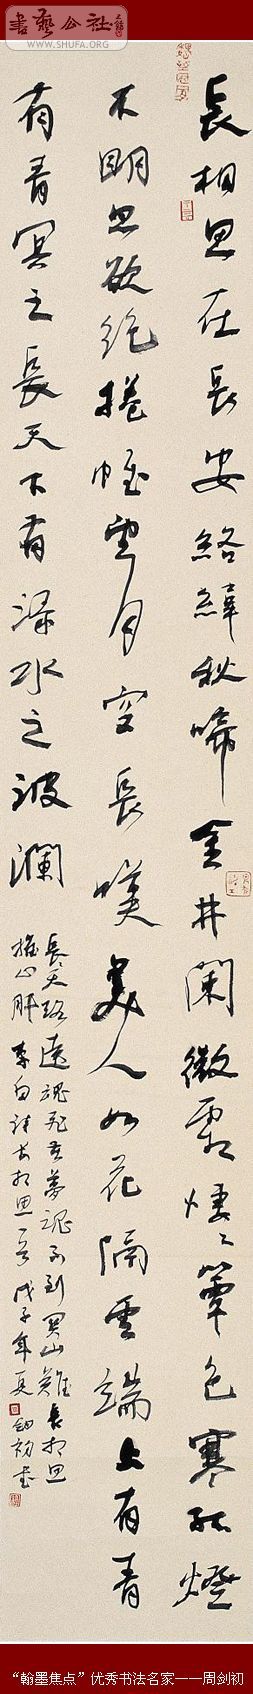 書藝公社
WWW.SHUFA.ORG
長相思在長安絡緯秋啼金井闌微霜悽〻簟色寒孤燈
不明思欲絕捲帷望月空長嘆美人如花隔雲端上有青
有青冥之長天下有渌水之波瀾
長天路遠魂飛苦夢魂不到関山難長相思
摧心肝 李白詩長相思一首 戊子年夏 劍初書
“翰墨焦点”优秀书法名家——周剑初